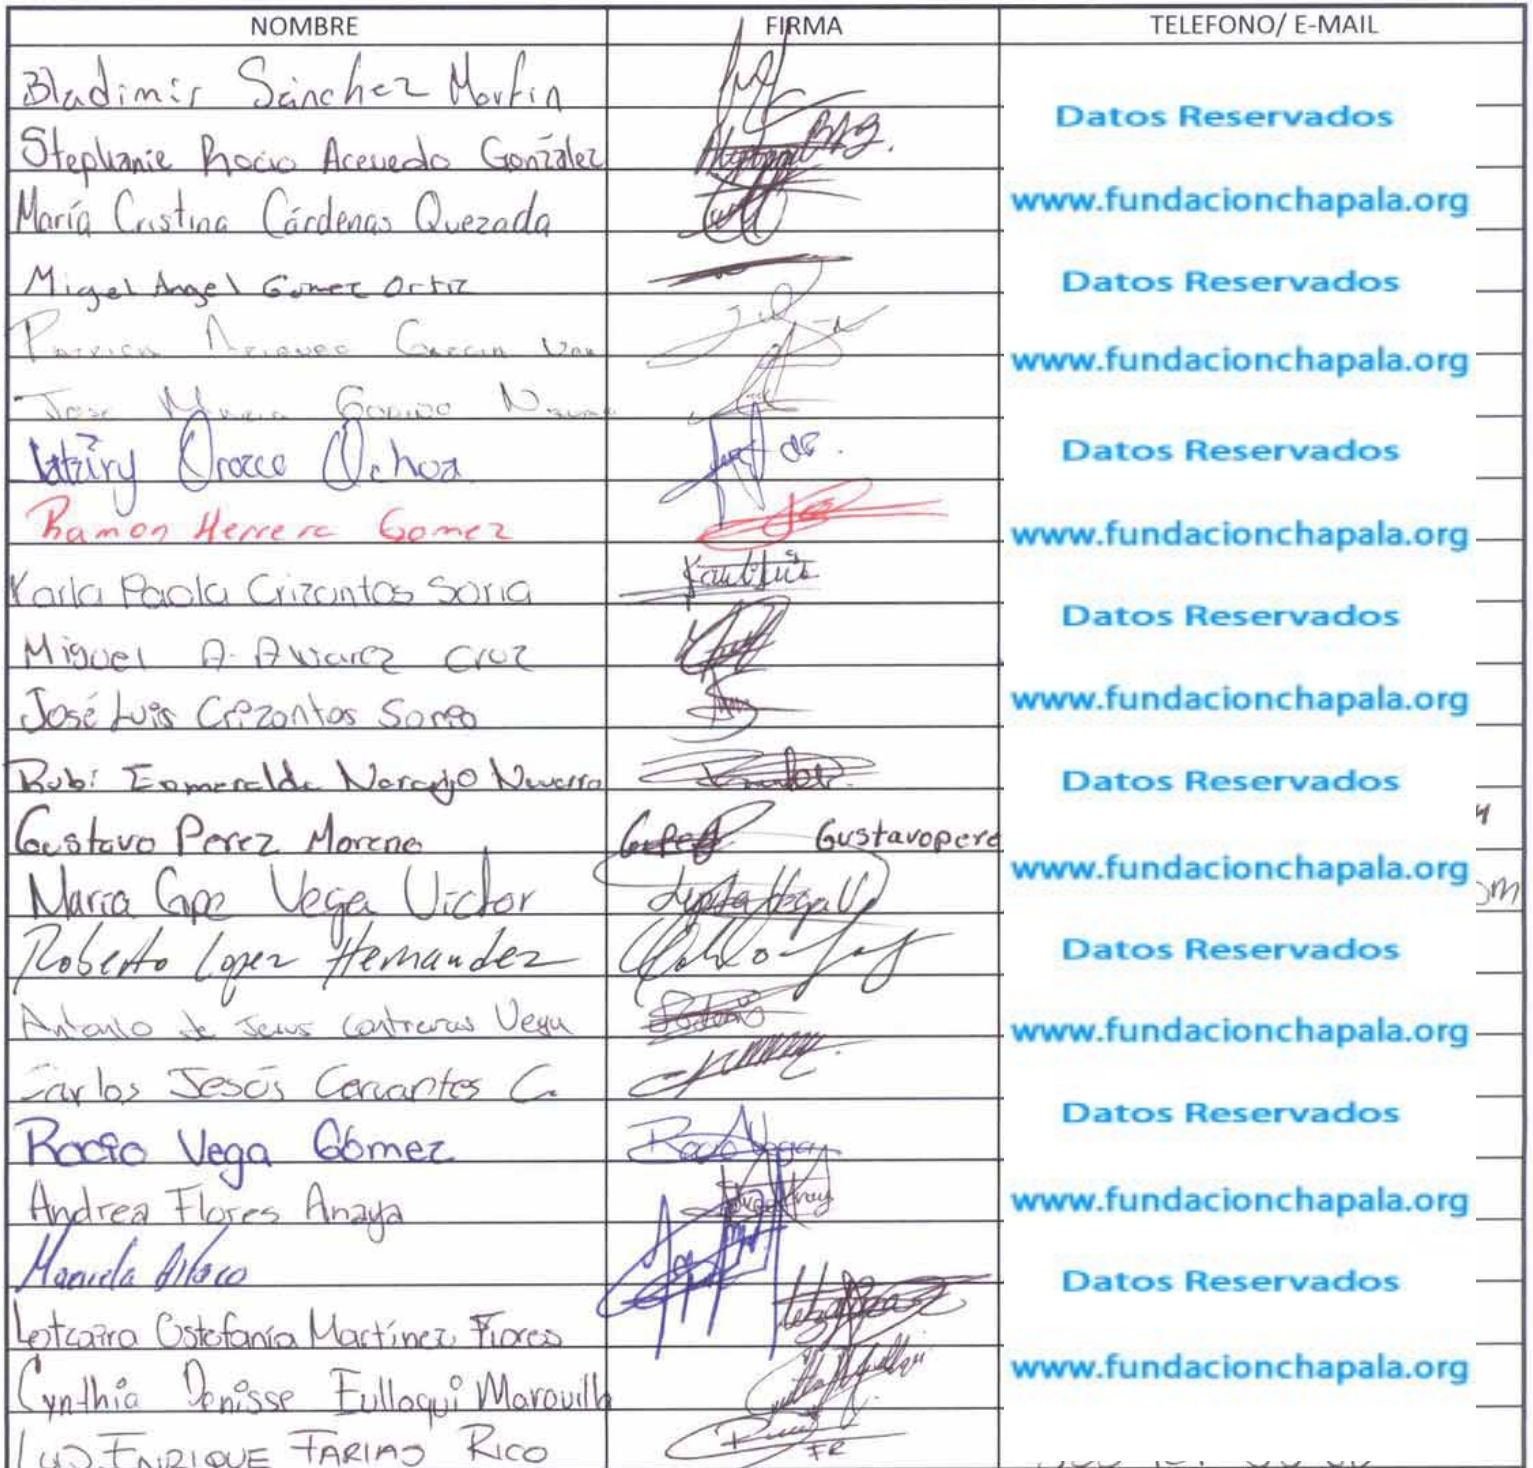 NOMBRE FIRMA TELEFONO/ E-MAIL
Bladimir Sánchez Martin
Datos Reservados
Stephanie Rocio Acevedo González
María Cristina Cárdenas Quezada www.fundacionchapala.org
Migel Angel Gomez Ortiz Datos Reservados
Garcia
www.fundacionchapala.org
Jose Maria
Orozco Ochoa Datos Reservados
Ramon Herrera Gomez www.fundacionchapala.org
Karla Paola Crizantos Soria
Datos Reservados
Miguel A. Alvarez Cruz
José Luis Crizantos Soria www.fundacionchapala.org
Rubi Esmeralda Naranjo Navarro Datos Reservados
Gustavo Perez Moreno Gustavopere
www.fundacionchapala.org
Maria Gpe Vega Victor Lupita Vega V om
Roberto Lopez Hernandez Datos Reservados
Antonio de Jesus Contreras Vega www.fundacionchapala.org
Carlos Jesús Cervantes C.
Datos Reservados
Rocío Vega Gómez Rocio Vega
Andrea Flores Anaya www.fundacionchapala.org
Datos Reservados
Estefanía Martínez Flores
www.fundacionchapala.org
Cynthia Denisse Eulloqui Maravilla
LUIS ENRIQUE FARIAS RICO FR